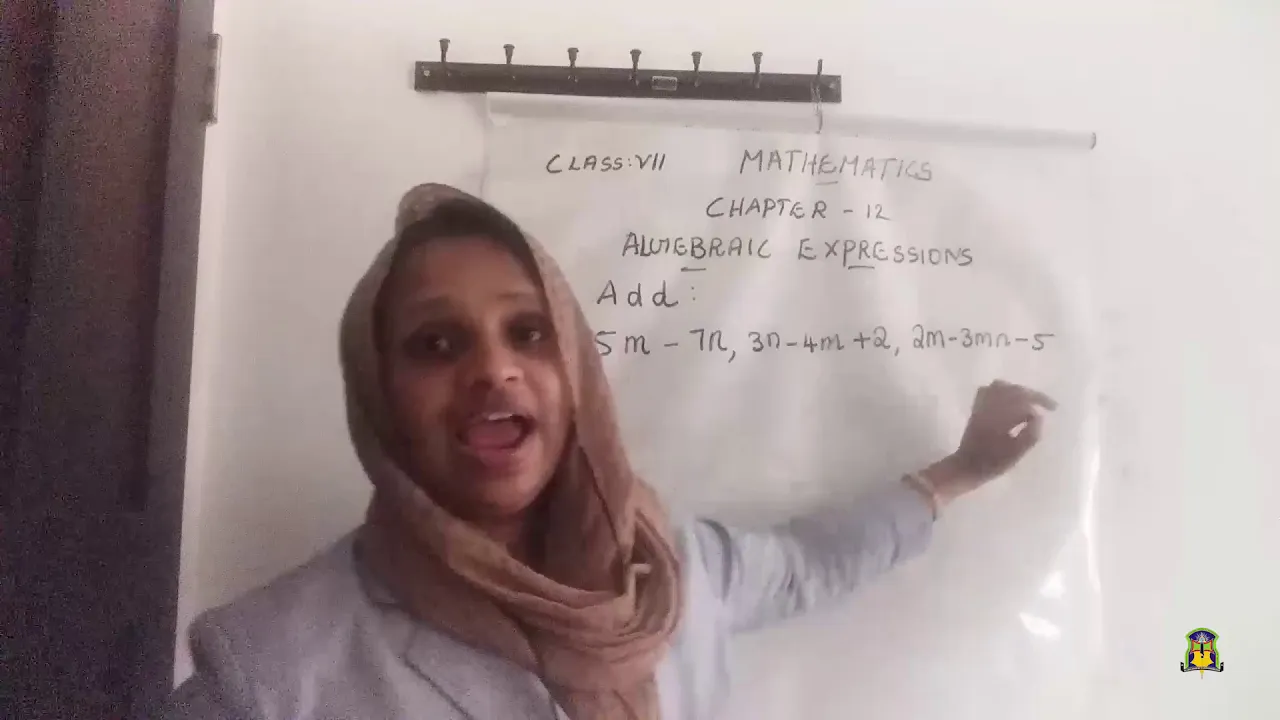 CLASS: VII MATHEMATICS
CHAPTER - 12
ALGEBRAIC EXPRESSIONS
Add:
5m - 7n, 3n - 4m + 2, 2m - 3mn - 5